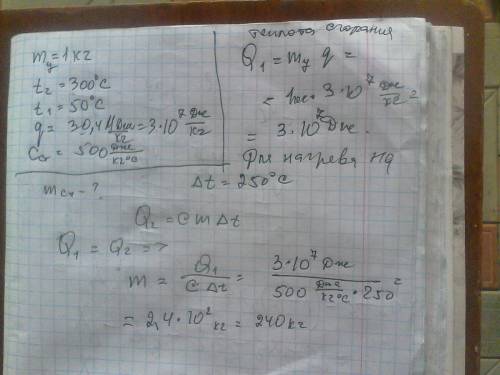 m_у = 1 кг
t₂ = 300°C
t₁ = 50°C
q = 30,4 МДж/кг = 3·10⁷ Дж/кг
C_ст = 500 Дж/кг°C
m_ст - ?
теплота сгорания
Q₁ = m_у q =
= 1кг · 3·10⁷ Дж/кг
= 3·10⁷ Дж.
Для нагрева на
Δt = 250°C
Q₂ = C m Δt
Q₁ = Q₂ =>
m = Q₁ / C Δt = 3·10⁷ Дж / 500 Дж/кг°C · 250
= 2,4·10² кг = 240 кг